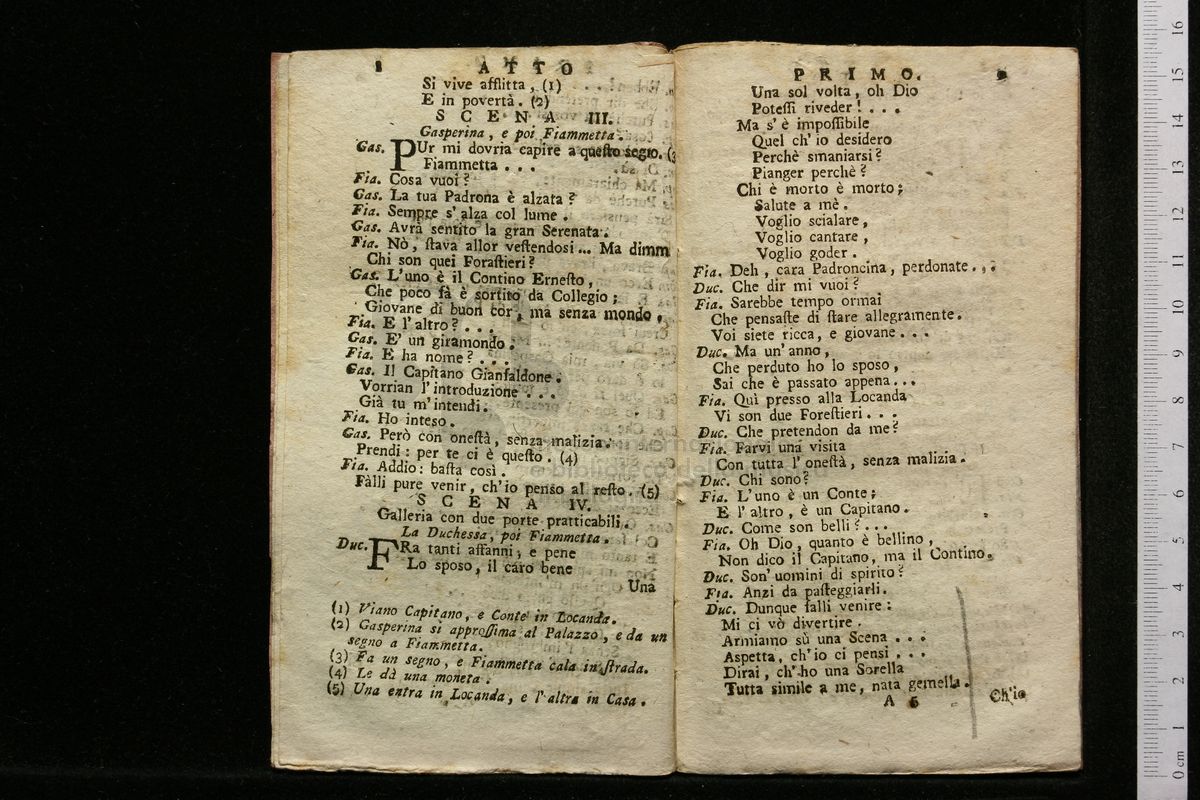 8 ATTO
Si vive afflitta, (1)
E in povertà. (2)
SCENA III.
Gasperina, e poi Fiammetta.
Gas. PUr mi dovria capire a questo segno. (3
Fiammetta . . .
Fia. Cosa vuoi?
Gas. La tua Padrona è alzata?
Fia. Sempre s'alza col lume.
Gas. Avrà sentito la gran Serenata.
Fia. Nò, stava allor vestendosi... Ma dimm
Chi son quei Forastieri?
Gas. L'uno è il Contino Ernesto,
Che poco fà è sortito da Collegio;
Giovane di buon cor, ma senza mondo,
Fia. E l'altro? . . .
Gas. E' un giramondo.
Fia. E ha nome? . . .
Gas. Il Capitano Gianfaldone.
Vorrian l'introduzione . . .
Già tu m'intendi.
Fia. Ho inteso.
Gas. Però con onestà, senza malizia.
Prendi: per te ci è questo. (4)
Fia. Addio: basta così.
Fàlli pure venir, ch'io penso al resto. (5)
SCENA IV.
Galleria con due porte pratticabili.
La Duchessa, poi Fiammetta.
Duc. FRa tanti affanni, e pene
Lo sposo, il caro bene
Una
(1) Viano Capitano, e Conte in Locanda.
(2) Gasperina si approssima al Palazzo, e da un
segno a Fiammetta.
(3) Fa un segno, e Fiammetta cala in strada.
(4) Le dà una moneta.
(5) Una entra in Locanda, e l'altra in Casa.
PRIMO.
Una sol volta, oh Dio
Potessi riveder! . . .
Ma s'è impossibile
Quel ch'io desidero
Perchè smaniarsi?
Pianger perchè?
Chi è morto è morto;
Salute a mè.
Voglio scialare,
Voglio cantare,
Voglio goder.
Fia. Deh, cara Padroncina, perdonate...
Duc. Che dir mi vuoi?
Fia. Sarebbe tempo ormai
Che pensaste di stare allegramente.
Voi siete ricca, e giovane . . .
Duc. Ma un'anno,
Che perduto ho lo sposo,
Sai che è passato appena...
Fia. Quì presso alla Locanda
Vi son due Forestieri . . .
Duc. Che pretendon da me?
Fia. Farvi una visita
Con tutta l'onestà, senza malizia.
Duc. Chi sono?
Fia. L'uno è un Conte;
E l'altro, è un Capitano.
Duc. Come son belli? . . .
Fia. Oh Dio, quanto è bellino,
Non dico il Capitano, ma il Contino.
Duc. Son'uomini di spirito?
Fia. Anzi da pasteggiarli.
Duc. Dunque falli venire:
Mi ci vò divertire.
Armiamo sù una Scena . . .
Aspetta, ch'io ci pensi . . .
Dirai, ch'ho una Sorella
Tutta simile a me, nata gemella.
A 5 Ch'io
0 cm 1 2 3 4 5 6 7 8 9 10 11 12 13 14 15 16